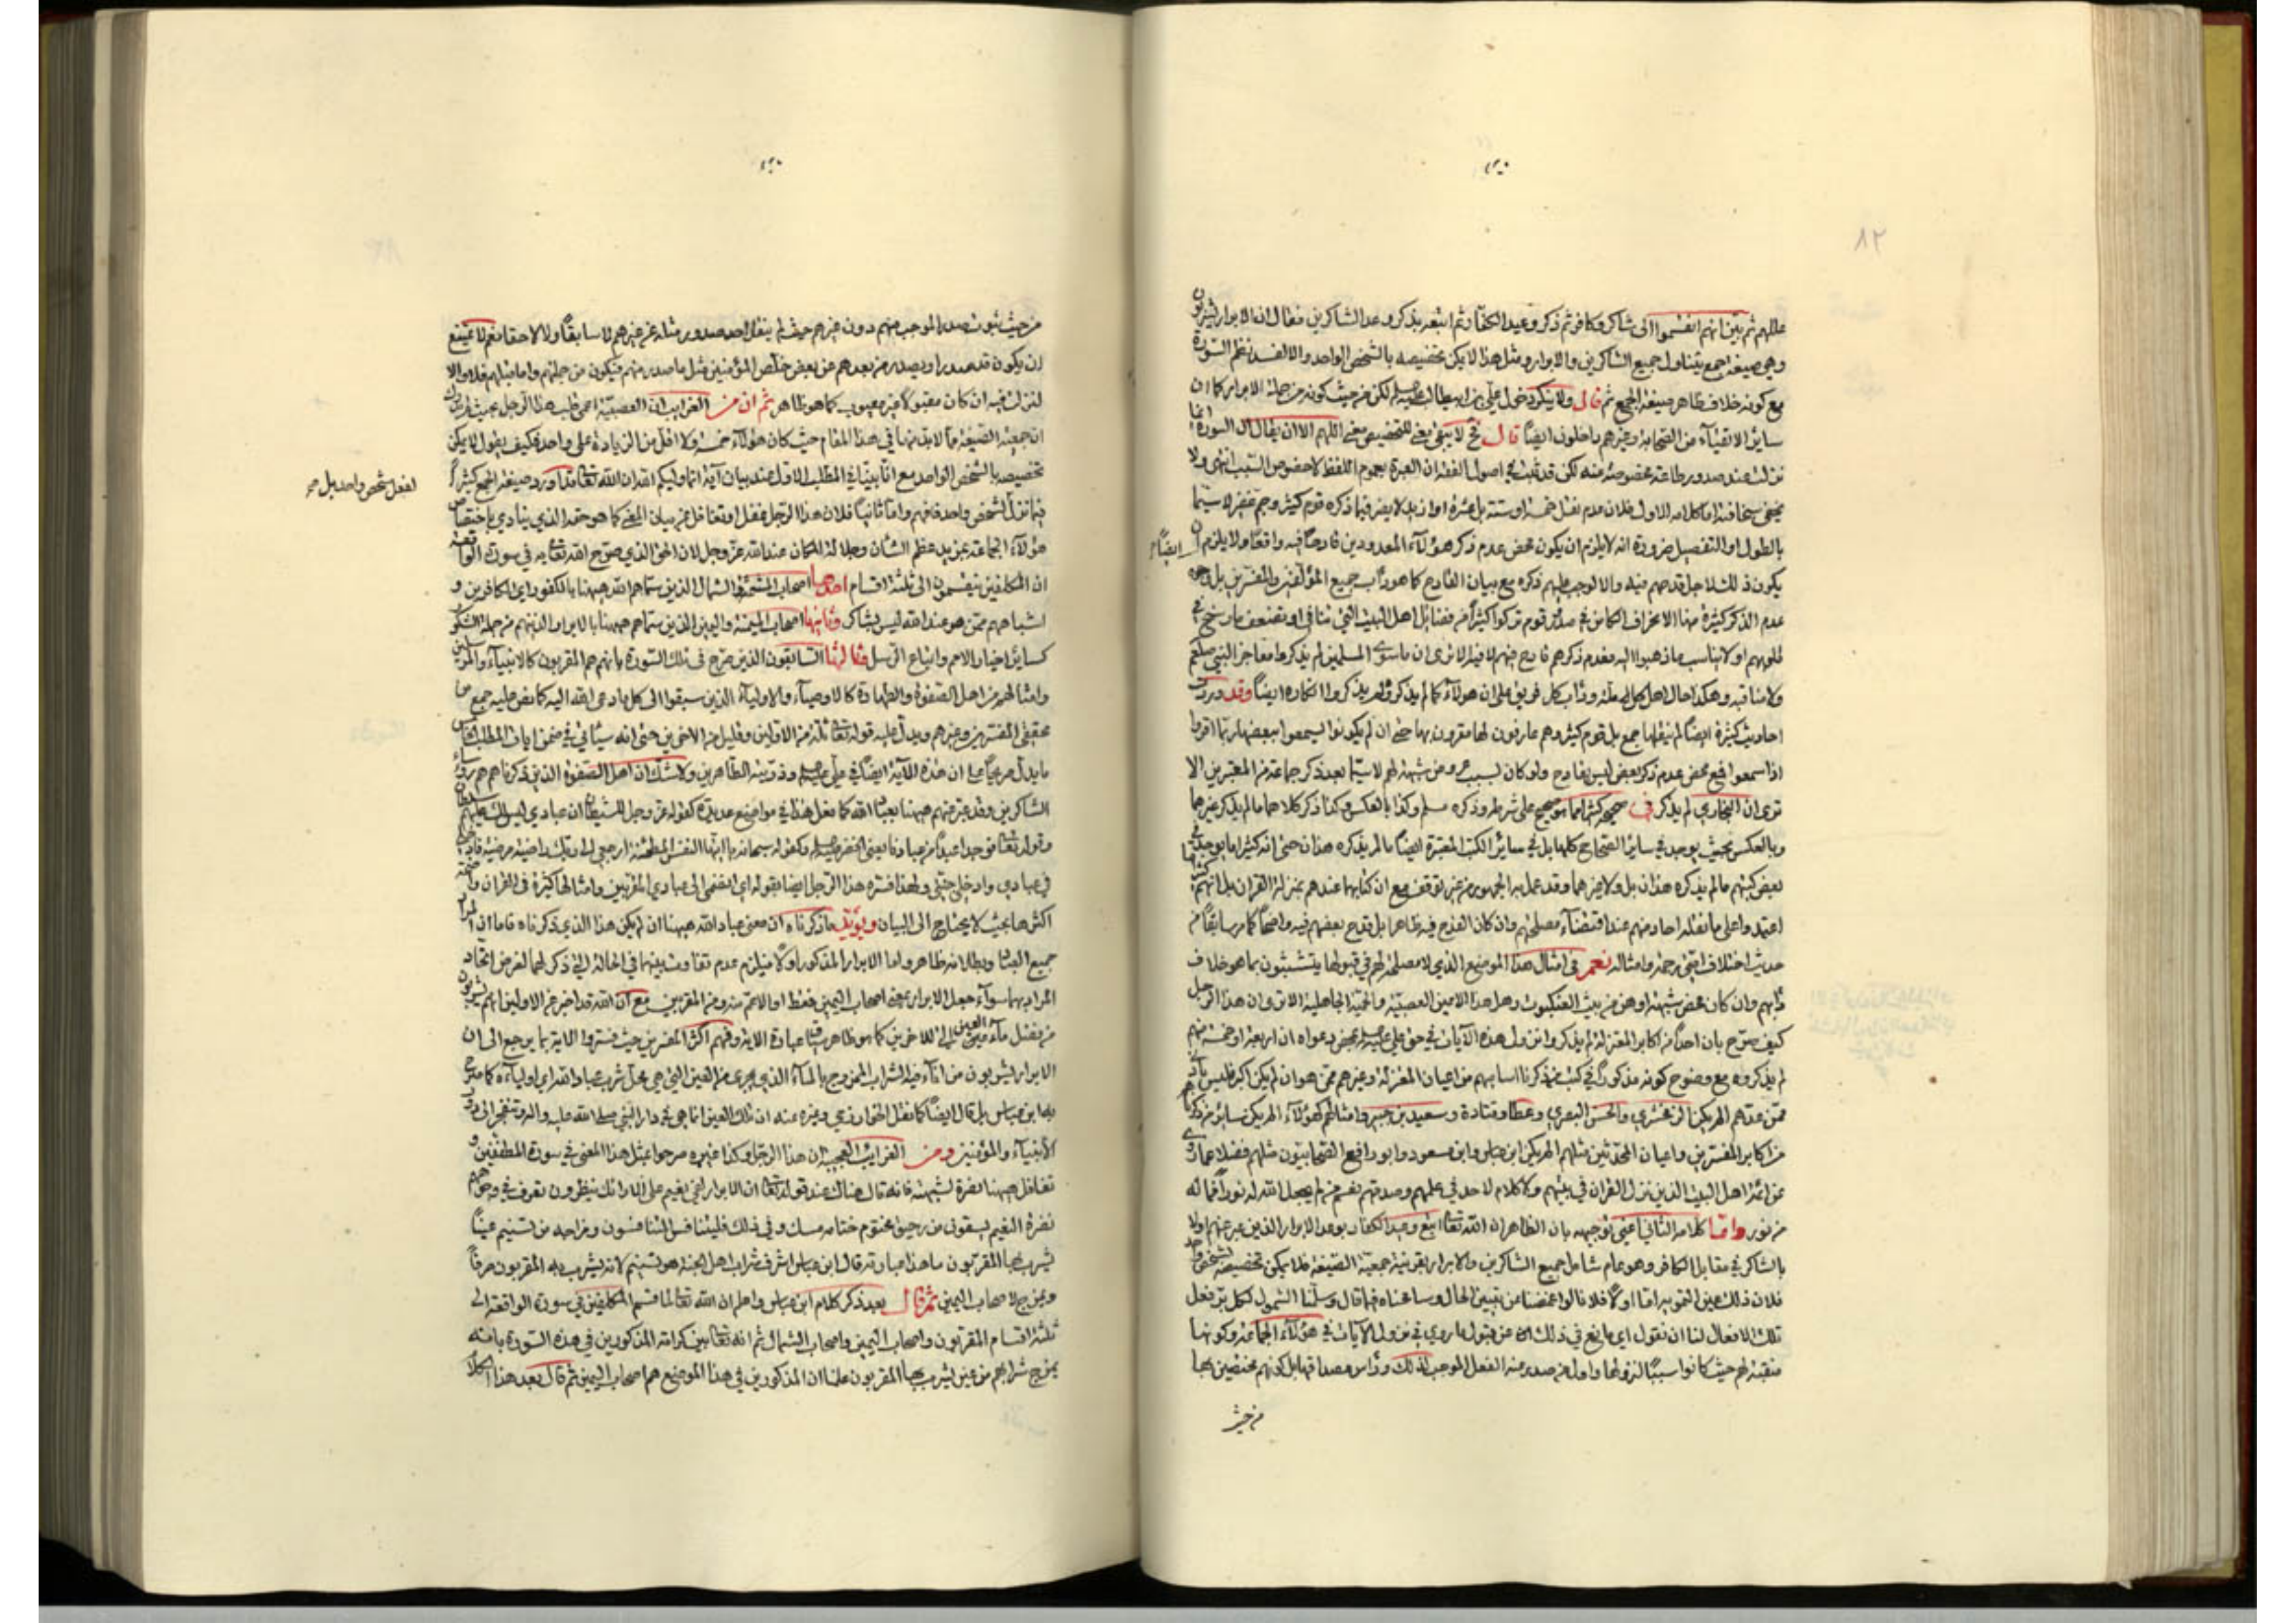 ٨٢
عللهم ثم بيّن انهم انقسموا الى شاكر وكافر ثم ذكر وعيد الكفار ثم اتبعه بذكر وعد الشاكرين فقال ان الابرار يشربون
وهي صيغة جمع يتناول جميع الشاكرين والابرار ومثل هذا لا يمكن تخصيصه بالشخص الواحد والا لفسد نظم السورة
مع كونه خلاف ظاهر صيغة الجمع ثم قال ولا ينكر دخول علي بن ابيطالب عليه السلم لكن من حيث كونه من جملة الابرار كما ان
سائر الاتقياء من الصحابة وغيرهم داخلون ايضاً قال فح لا يبقى معنى للتخصيص معنى اللهم الا ان يقال ان السورة انما
نزلت عند صدور طاعة مخصوصة منه لكن قد ثبت في اصول الفقه ان العبرة بعموم اللفظ لا خصوص السبب انتهى ولا
يخفى سخافته اما كلامه الاول فلان عدم نقل خمسة او ستة بل عشرة او ازيد لا يضر فيما ذكره قوم كثير وجم غفير لا سيما
بالطول او التفصيل ضرورة انه لا يلزم ان يكون محض عدم ذكر هؤلآء المعدودين قادحاً فيه واقعاً ولا يلزم ان
ايضاً
يكون ذلك لاجل قدحهم فيه والا لوجب عليهم ذكره مع بيان القادح كما هو دأب جميع المؤلفين والمفسرين بل وجوه
عدم الذكر كثيرة منها الانحراف الكامن في صدر قوم تركوا كثيراً من فضائل اهل البيت التي تنافي او تضعف ما رسخ في
قلوبهم او لا يناسب ما ذهبوا اليه فعدم ذكرهم قادح فيهم لا فيه الا ترى ان ما سوى المسلمين لم يذكروا معاجز النبي صلعم
ولا مناقبه وهكذا حال اهل كل ملة ودأب كل فريق على ان هؤلآء كما لم يذكروه لم يذكروا انكاره ايضاً وقد ورد
احاديث كثيرة ايضاً لم ينقلها جمع بل قوم كثير وهم عارفون لها مقرون بها حتى ان لم يكونوا يسمعوا ببعضها ربما اقروا
اذا سمعوا فمحض عدم ذكر بعض ليس بقادح ولو كان لسبب عروض شبهة لهم لا سيما بعد ذكر جماعة من المعتبرين الا
ترى ان البخاري لم يذكر في صحيحه كثيراً مما هو صحيح على شرطه وذكره مسلم وكذا بالعكس وكذا ذكر كلاهما ما لم يذكر غيرهما
وبالعكس بحيث يوجد في سائر الصحاح كلها بل في سائر الكتب المعتبرة ايضاً ما لم يذكره هذان حتى انه كثيرا ما يوجد في
بعض كتبهم ما لم يذكره هذان بل ولا غيرهما وقد عمل به الجمهور من غير توقف مع ان كتابهما عندهم بمنزلة القران بل انهم كثيراً ما
اعتمدوا على ما نقله احاد منهم عند اقتضاء مصلحتهم وان كان القدح فيه ظاهرا بل قدح بعضهم فيه واضحاً كما مر سابقاً من
حديث اختلاف امتي رحمة وامثاله نعم في امثال هذا الموضع الذي لا مصلحة لهم في قبولها يتشبثون بما هو خلاف
دأبهم وان كان محض شبهة اوهن من بيت العنكبوت وهل هذا الا عين العصبية والحمية الجاهلية الا ترى ان هذا الرجل
كيف صرح بان احداً من اكابر المعتزلة لم يذكروا نزول هذه الآيات في حق علي عليه السلم بمحض دعواه ان اربعة او خمسة منهم
لم يذكروه مع وضوح كونه مذكوراً في كتب من ذكرنا اسامهم من اعيان المعتزلة وغيرهم ممن هو ان لم يكن اكبر فليس بأدون
ممن عدهم الم يكن الزمخشري والحسن البصري وعطا وقتادة وسعيد بن جبير وامثالهم كهؤلآء الم يكن سائر من ذكرناهم
من اكابر المفسرين واعيان المحدثين مثلهم الم يكن ابن عباس وابن مسعود وابو رافع الصحابيون مثلهم فضلا عما روى
عن ائمة اهل البيت الذين نزل القران في بيتهم ولا كلام لاحد في علمهم وصدقهم نعم من لم يجعل الله له نوراً فما له
من نور واما كلامه الثاني اعني توجيهه بان الظاهر ان الله تعا اتبع وعيد الكفار بوعد الابرار الذين عبر عنهم اولا
بالشاكر في مقابل الكافر وهو عام شامل جميع الشاكرين والابرار بقرينة جمعية الصيغة فلا يمكن تخصيصه بشخص واحد
فلان ذلك عين التمويه اما اولاً فلانا لو اغمضنا من تبيين الحال وسامحناه فيما قال وسلمنا الشمول لكل بر فعل
تلك الافعال لنا ان نقول اي مانع في ذلك من قبول ما روي في نزول الآيات في هؤلآء الجماعة وكونها
منقبة لهم حيث كانوا سبباً لنزولها واول من صدر منه الفعل الموجب لذلك ورأس مصداقها بل كونهم مختصين بها
من حيث
من حيث ثبوت صدور الموجب منهم دون غيرهم حيث لم ينقل احد صدور مثله عن غيرهم لا سابقاً ولا لاحقا نعم لا يمتنع
ان يكون قد صدر او يصدر من بعدهم عن بعض خلّص المؤمنين مثل ما صدر منهم فيكون من جملتهم واما مثلهم فلا والا
لنزلت فيه ان كان مقبولاً غير معيوب كما هو ظاهر ثم ان من الغرايب ان العصبية اعمى قلب هذا الرجل بحيث لم يدرك
ان جمعية الصيغة مما لا بد منها في هذا المقام حيث كان هؤلآء خمسة ولا اقل من الزيادة على واحد فكيف يقول لا يمكن
تخصيصه بالشخص الواحد مع انا بينا في المطلب الاول عند بيان آية انما وليكم الله ان الله تعا قد اورد صيغة الجمع كثيراً
لفعل شخص واحد بل صح
فيما نزل لشخص واحد فافهم واما ثانياً فلان هذا الرجل غفل او تغافل عن بيان المعنى كما هو حقه الذي ينادي باختصاص
هؤلآء الجماعة بمزيد عظم الشأن وجلالة المكان عند الله عز وجل لان الحق الذي صرح الله تعا به في سورة الواقعة
ان المكلفين ينقسمون الى ثلثة اقسام احدها اصحاب المشئمة والشمال الذين سماهم الله ههنا بالكفور اي الكافرين و
اشباههم ممن هو عند الله ليس بشاكر وثانيها اصحاب الميمنة واليمين الذين سماهم ههنا بالابرار الذينهم من جملة الشكور
كسائر اخيار الامم واتباع الرسل وثالثها السابقون الذين صرح في تلك السورة بانهم هم المقربون كالانبياء والمرسلين
وامثالهم من اهل الصفوة والطهارة كالاوصيآء والاوليآء الذين سبقوا الى كل ما دعى الله اليه كما نص عليه جمع من
محققي المفسرين وغيرهم ويدل عليه قوله تعا ثلة من الاولين وقليل من الاخرين حتى انه سيأتي في ضمن ايات المطلب السادس
ما يدل صريحاً على ان هذه الآية ايضاً في علي عليه السلم وذريته الطاهرين ولا شك ان اهل الصفوة الذين ذكرناهم هم رؤساء
الشاكرين وقد عبر عنهم ههنا بعباد الله كما فعل هذا في مواضع عديدة كقوله عز وجل للشيطان ان عبادي ليس لك عليهم سلطان
وقوله تعا فوجدا عبداً من عبادنا يعني الخضر عليه السلم وكقوله سبحانه يا ايتها النفس المطمئنة ارجعي الى ربك راضية مرضية فادخلي
في عبادي وادخلي جنتي ولهذا فسره هذا الرجل ايضا بقوله اي انضمي الى عبادي المقربين وامثالها كثيرة في القران واضحة
اكثرها بحيث لا يحتاج الى البيان ويؤيد ما ذكرناه ان معنى عباد الله ههنا ان لم يكن هذا الذي ذكرناه فاما ان المراد
جميع العباد وبطلانه ظاهر واما الابرار المذكور اولا فيلزم عدم تفاوت بينهما في الحالة التي ذكر لهما لفرض اتحاد
المراد بهما سوآء جعل الابرار بمعنى اصحاب اليمين فقط او الاعم منه ومن المقربين مع ان الله قد اخبر عن الاولين انهم يشربون
من فضل مآء العين التي للاخرين كما هو ظاهر سياق عبارة الاية وفهم اكثر المفسرين حيث فسروا الاية بما يرجع الى ان
الابرار يشربون من انآء فيه الشراب الممزوج بالمآء الذي يجري من العين التي هي محل شرب عباد الله اي اوليآءه كما صرح
به ابن عباس بل قال ايضاً كما نقل الخوارزمي وغيره عنه ان تلك العين انما هي في دار النبي صلى الله عليه واله وتنفجر الى دور
الانبيآء والمؤمنين ومن الغرايب العجيبة ان هذا الرجل وكذا غيره صرحوا بمثل هذا المعنى في سورة المطففين و
تغافل ههنا نصرة لشبهته فانه قال هناك عند قوله تعا ان الابرار لفي نعيم على الارائك ينظرون تعرف في وجوههم
نضرة النعيم يسقون من رحيق مختوم ختامه مسك وفي ذلك فليتنافس المتنافسون ومزاجه من تسنيم عيناً
يشرب بها المقربون ما هذا عبارته قال ابن عباس اشرف شراب اهل الجنة هو تسنيم لانه يشرب به المقربون صرفاً
ويمزج لاصحاب اليمين ثم قال بعد ذكر كلام ابن عباس واعلم ان الله تعا لما قسم المكلفين في سورة الواقعة الى
ثلثة اقسام المقربون واصحاب اليمين واصحاب الشمال ثم انه تعا بين كرامة المذكورين في هذه السورة بانه
يمزج شرابهم من عين يشرب بها المقربون علمنا ان المذكورين في هذا الموضع هم اصحاب اليمين ثم قال بعد هذا الكلام